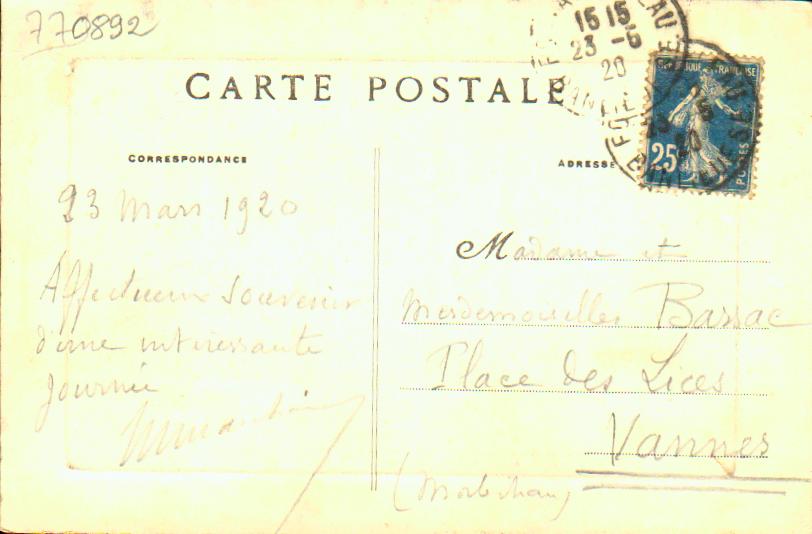 770892
15 15
23 -5
20
CARTE POSTALE
RÉPUBLIQUE FRANÇAISE
25
POSTES
CORRESPONDANCE
ADRESSE
23 Mars 1920
Affectueux souvenir
d'une intéressante
Journée
Madame et
Mesdemoiselles Barsac
Place des Lices
Vannes
(Morbihan)